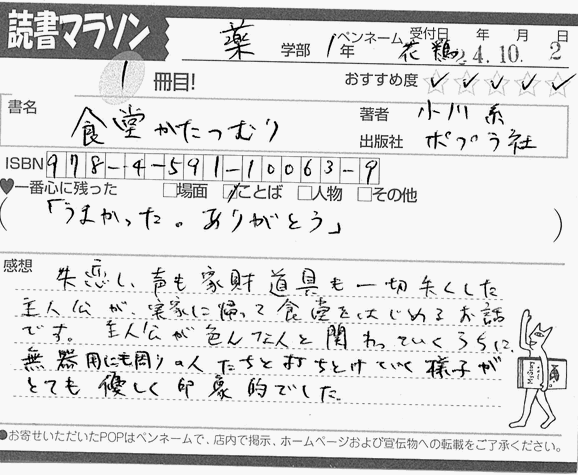 読書マラソン
薬 学部 1年 ペンネーム 花鶏 受付日 年 月 日
24.10. 2
1 冊目! おすすめ度
書名 食堂かたつむり
著者 小川 糸
出版社 ポプラ社
ISBN 978-4-591-10063-9
♥一番心に残った □場面 ☑ことば □人物 □その他
(「うまかった。ありがとう」)
感想
失恋し、声も家財道具も一切失くした
主人公が、実家に帰って食堂をはじめるお話
です。主人公が色んな人と関わっていくうちに、
無器用にも周りの人たちと打ちとけていく様子が
とても優しく印象的でした
●お寄せいただいたPOPはペンネームで、店内で掲示、ホームページおよび宣伝物への転載をご了承ください。